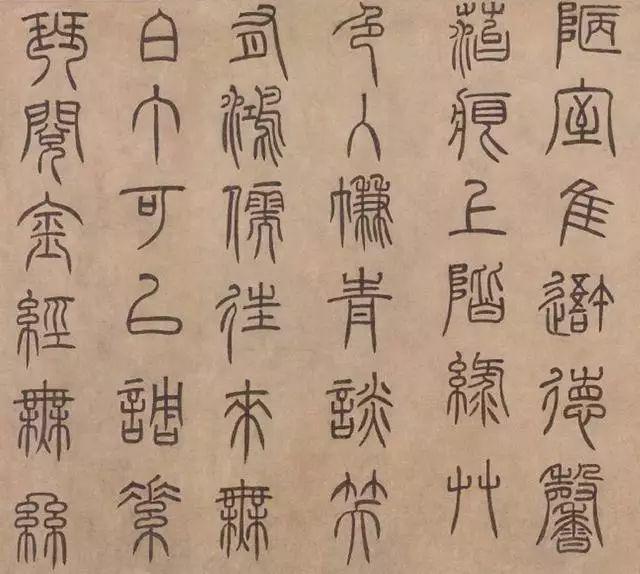 陋室隹吾德馨
菭痕上階綠艸
色入㡘青談笑
有鴻儒往來無
白丁可㠯調素
琴閱金經無絲